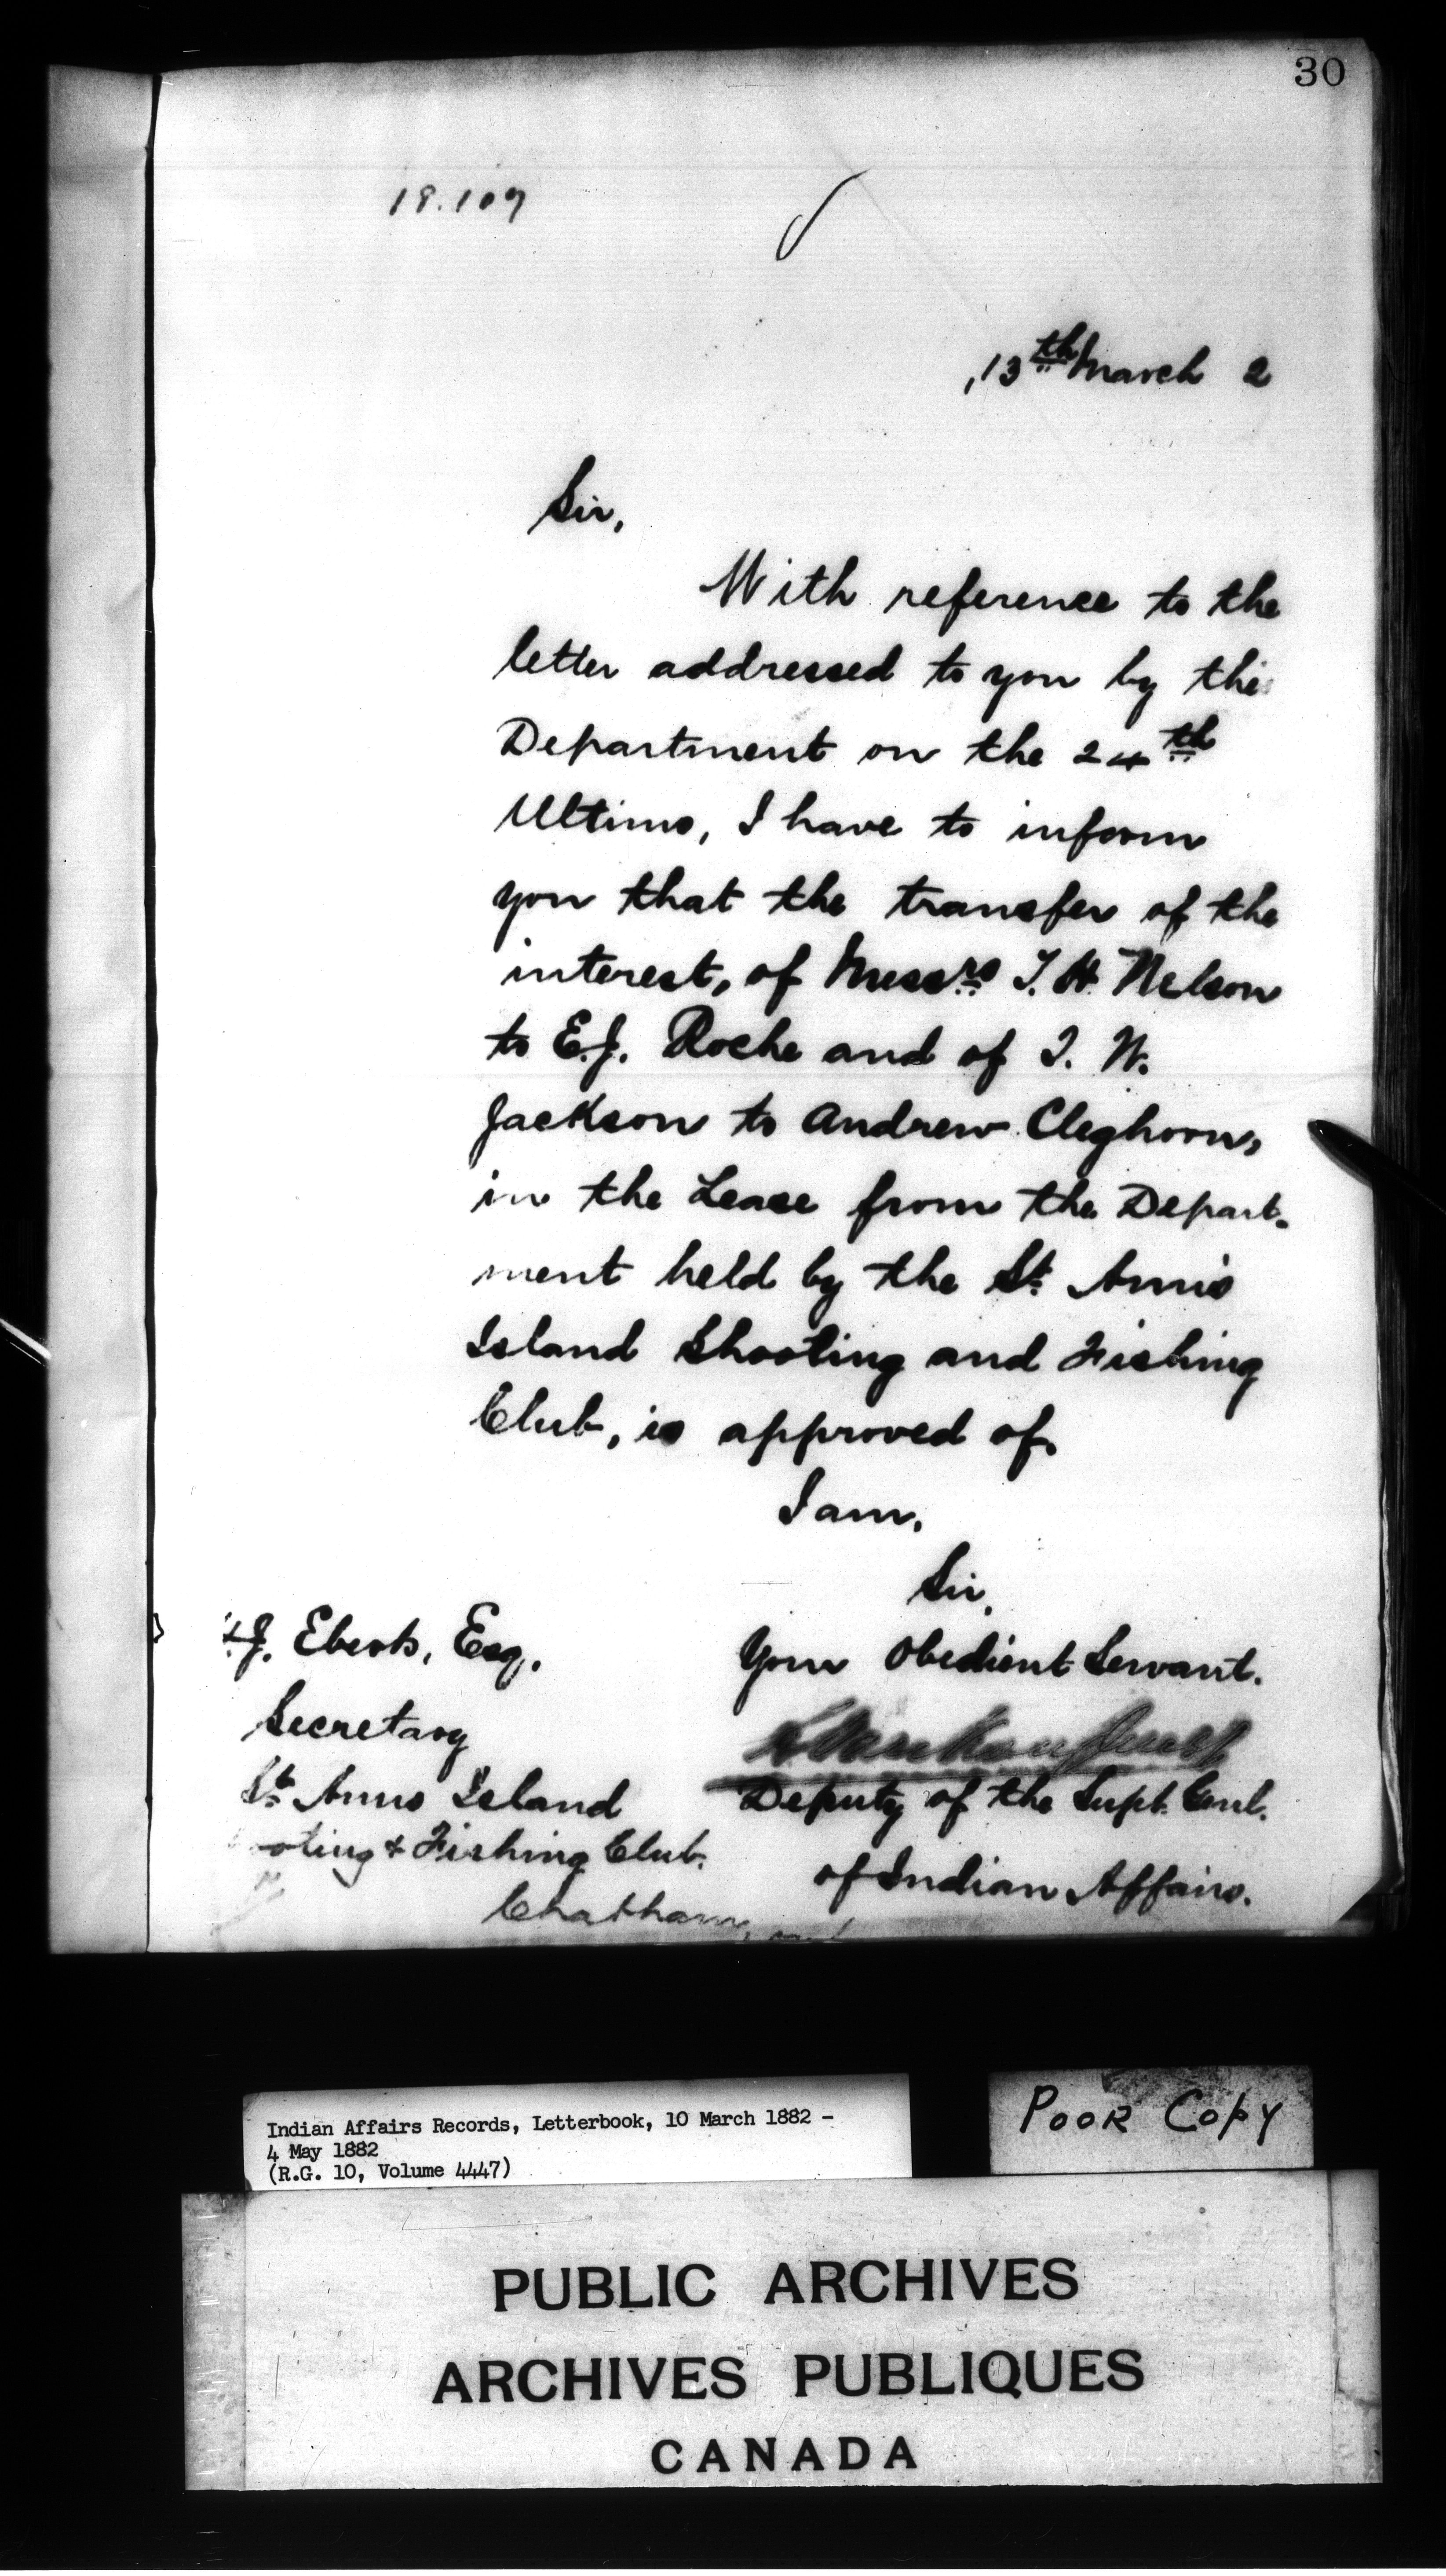 30
18.107
13th March 2
Sir,
With reference to the
letter addressed to you by this
Department on the 24th
Ultimo, I have to inform
you that the transfer of the
interest, of Messrs T. H. Nelson
to E.J. Roche and of T. W.
Jackson to Andrew Cleghorn,
in the Lease from the Depart-
ment held by the St. Anns
Island Shooting and Fishing
Club, is approved of.
I am,
Sir,
Your Obedient Servant.
Deputy of the Supt. Genl.
of Indian Affairs.
J. Eberts, Esq.
Secretary
St. Anns Island
oting & Fishing Club.
Chatham,
Indian Affairs Records, Letterbook, 10 March 1882 -
4 May 1882
(R.G. 10, Volume 4447)
POOR COPY
PUBLIC ARCHIVES
ARCHIVES PUBLIQUES
CANADA